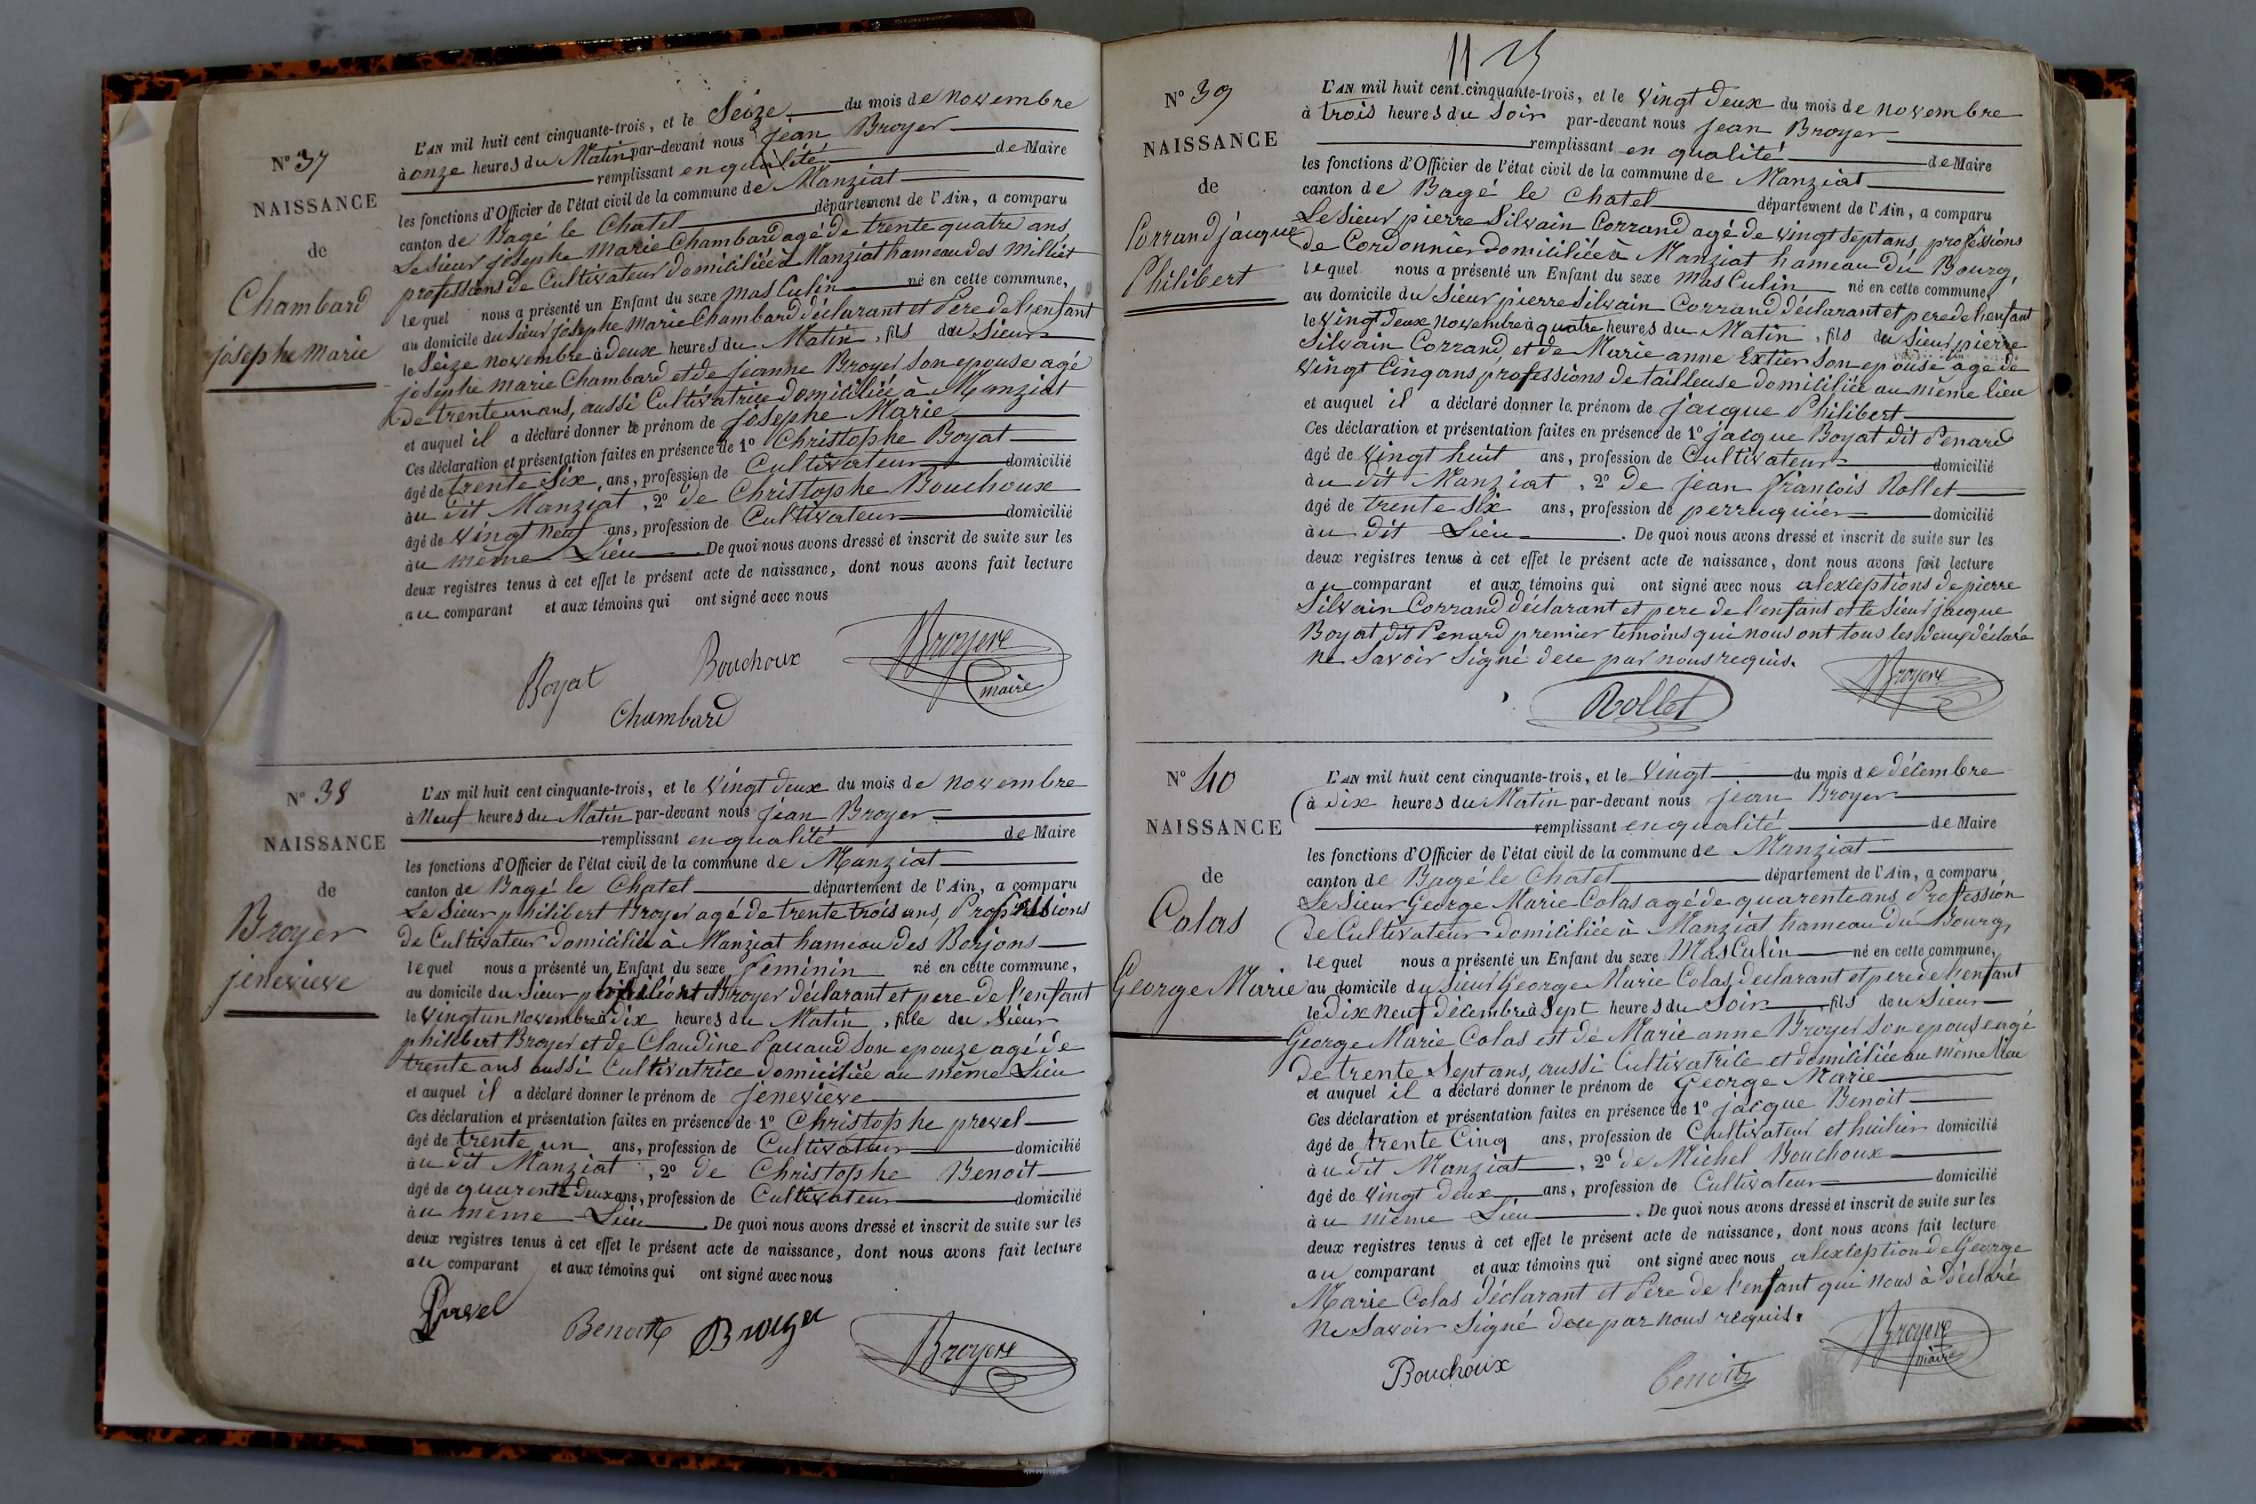 N° 37
NAISSANCE
de
Chambard
josephe Marie
L'AN mil huit cent cinquante-trois, et le Seize du mois de novembre
à onze heures du Matin par-devant nous Jean Broyer
remplissant en qualité de Maire
les fonctions d'Officier de l'état civil de la commune de Manziat
canton de Bagé le Chatel département de l'Ain, a comparu
Le Sieur josephe Marie Chambard agé de trente quatre ans
professions de Cultivateur domiciliée à Manziat hameau des Milliet
lequel nous a présenté un Enfant du sexe masCulin né en cette commune,
au domicile du Sieur josephe Marie Chambard déclarant et Pere de l'enfant
le Seize novembre à deux heures du Matin, fils du Sieur
josephe marie Chambard et de jeanne Broyer son epouse agé
de trente un ans, aussi Cultivatrice domiciliée à Manziat
et auquel il a déclaré donner le prénom de josephe Marie
Ces déclaration et présentation faites en présence de 1° Christophe Boyat
âgé de trente Six ans, profession de Cultivateur domicilié
àu dit Manziat, 2° de Christophe Bouchoux
âgé de vingt neuf ans, profession de Cultivateur domicilié
àu même Lieu. De quoi nous avons dressé et inscrit de suite sur les
deux registres tenus à cet effet le présent acte de naissance, dont nous avons fait lecture
au comparant et aux témoins qui ont signé avec nous
Boyat Bouchoux Broyere
maire
Chambard
N° 38
NAISSANCE
de
Broyer
jenevieve
L'AN mil huit cent cinquante-trois, et le vingt deux du mois de novembre
à Neuf heures du Matin par-devant nous jean Broyer
remplissant en qualité de Maire
les fonctions d'Officier de l'état civil de la commune de Manziat
canton de Bagé le Chatel département de l'Ain, a comparu
Le Sieur philibert Broyer agé de trente trois ans, Professions
de Cultivateur domiciliée à Manziat hameau des Borjons
lequel nous a présenté un Enfant du sexe feminin né en cette commune,
au domicile du Sieur philibert Broyer déclarant et pere de l'enfant
le vingt un novembre à dix heures du Matin, fille du Sieur
philibert Broyer et de Claudine Pauaud son epouze agé de
trente ans aussi Cultivatrice domiciliée au même Lieu
et auquel il a déclaré donner le prénom de jenevieve
Ces déclaration et présentation faites en présence de 1° Christophe prevel
âgé de trente un ans, profession de Cultivateur domicilié
àu dit Manziat, 2° de Christophe Benoit
âgé de quarente deux ans, profession de Cultivateur domicilié
àu même Lieu. De quoi nous avons dressé et inscrit de suite sur les
deux registres tenus à cet effet le présent acte de naissance, dont nous avons fait lecture
au comparant et aux témoins qui ont signé avec nous
Prevel Benoit Broyer Broyere
N° 39
NAISSANCE
de
Corrand jacque
Philibert
L'AN mil huit cent cinquante-trois, et le vingt deux du mois de novembre
à trois heures du soir par-devant nous jean Broyer
remplissant en qualité de Maire
les fonctions d'Officier de l'état civil de la commune de Manziat
canton de Bagé le Chatel département de l'Ain, a comparu
Le Sieur pierre Silvain Corrand agé de vingt sept ans, professions
de Cordonnier domiciliée à Manziat hameau du Bourg,
lequel nous a présenté un Enfant du sexe masCulin né en cette commune,
au domicile du Sieur pierre Silvain Corrand déclarant et pere de l'enfant
le vingt deux novembre à quatre heures du Matin, fils du Sieur pierre
Silvain Corrand, et de Marie anne Extier son epouse agé de
vingt Cinq ans professions de tailleuse domiciliée au même lieu
et auquel il a déclaré donner le prénom de jacque Philibert
Ces déclaration et présentation faites en présence de 1° jacque Boyat dit Penard
âgé de vingt huit ans, profession de Cultivateur domicilié
àu dit Manziat, 2° de jean françois Rollet
âgé de trente Six ans, profession de perruquier domicilié
àu dit Lieu. De quoi nous avons dressé et inscrit de suite sur les
deux registres tenus à cet effet le présent acte de naissance, dont nous avons fait lecture
au comparant et aux témoins qui ont signé avec nous alexceptions de pierre
Silvain Corrand déclarant et pere de l'enfant et le Sieur jacque
Boyat dit Penard premier temoins qui nous ont tous les deux déclaré
ne Savoir Signé dece par nous requis.
Rollet Broyere
N° 40
NAISSANCE
de
Colas
George Marie
L'AN mil huit cent cinquante-trois, et le vingt du mois de décembre
à dix heures du Matin par-devant nous jean Broyer
remplissant en qualité de Maire
les fonctions d'Officier de l'état civil de la commune de Manziat
canton de Bagé le Chatel département de l'Ain, a comparu
Le Sieur George Marie Colas agé de quarente ans, Profession
de Cultivateur domiciliée à Manziat hameau du Bourg,
lequel nous a présenté un Enfant du sexe MasCulin né en cette commune,
au domicile du Sieur George Marie Colas, declarant et pere de l'enfant
le dix neuf décembre à Sept heures du Soir fils du Sieur
George Marie Colas est de Marie anne Broyer son epouse agé
de trente Sept ans, aussi Cultivatrice et domiciliée au même lieu
et auquel il a déclaré donner le prénom de George Marie
Ces déclaration et présentation faites en présence de 1° jacque Benoit
âgé de trente Cinq ans, profession de Cultivateur et huilier domicilié
àu dit Manziat, 2° de Michel Bouchoux
âgé de vingt deux ans, profession de Cultivateur domicilié
àu même Lieu. De quoi nous avons dressé et inscrit de suite sur les
deux registres tenus à cet effet le présent acte de naissance, dont nous avons fait lecture
au comparant et aux témoins qui ont signé avec nous alexception de George
Marie Colas déclarant et Pere de l'enfant qui nous à déclaré
ne Savoir Signé dece par nous requis.
Bouchoux Benoit Broyere
maire